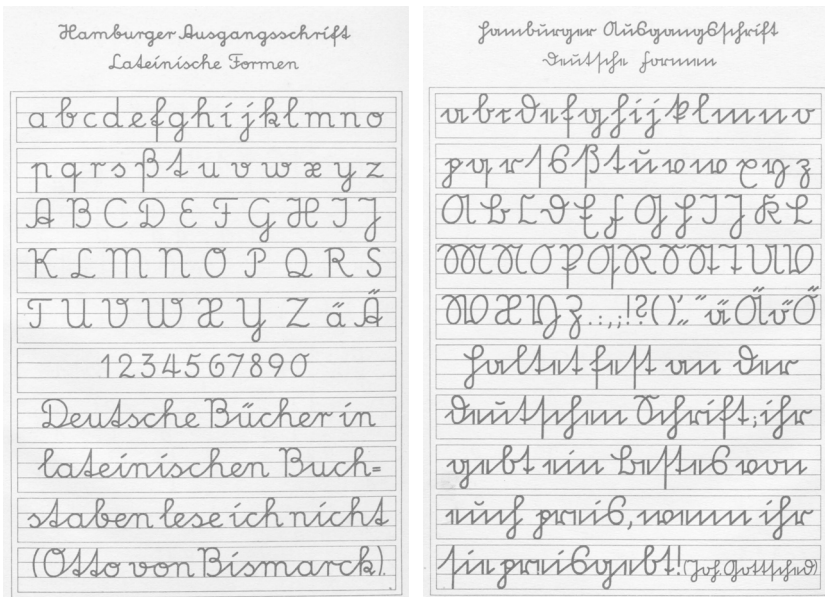 Hamburger Ausgangsschrift
Lateinische Formen
a b c d e f g h i j k l m n o
p q r s ß t u v w x y z
A B C D E F G H I J
K L M N O P Q R S
T U V W X Y Z ä Ä
1234567890
Deutsche Bücher in
lateinischen Buch=
staben lese ich nicht
(Otto von Bismarck).
Hamburger Ausgangsschrift
Deutsche Formen
a b c d e f g h i j k l m n o
p q r ſ s ß t u v w x y z
A B C D E F G H I J K L
M N O P Q R S St T U V
W X Y Z . : , ; ! ? ( ) ' „ “ ä Ä ö Ö
Haltet fest an der
deutschen Schrift; ihr
gebt ein Bestes von
euch preis, wenn ihr
sie preisgebt! (Joh. Gottsched)